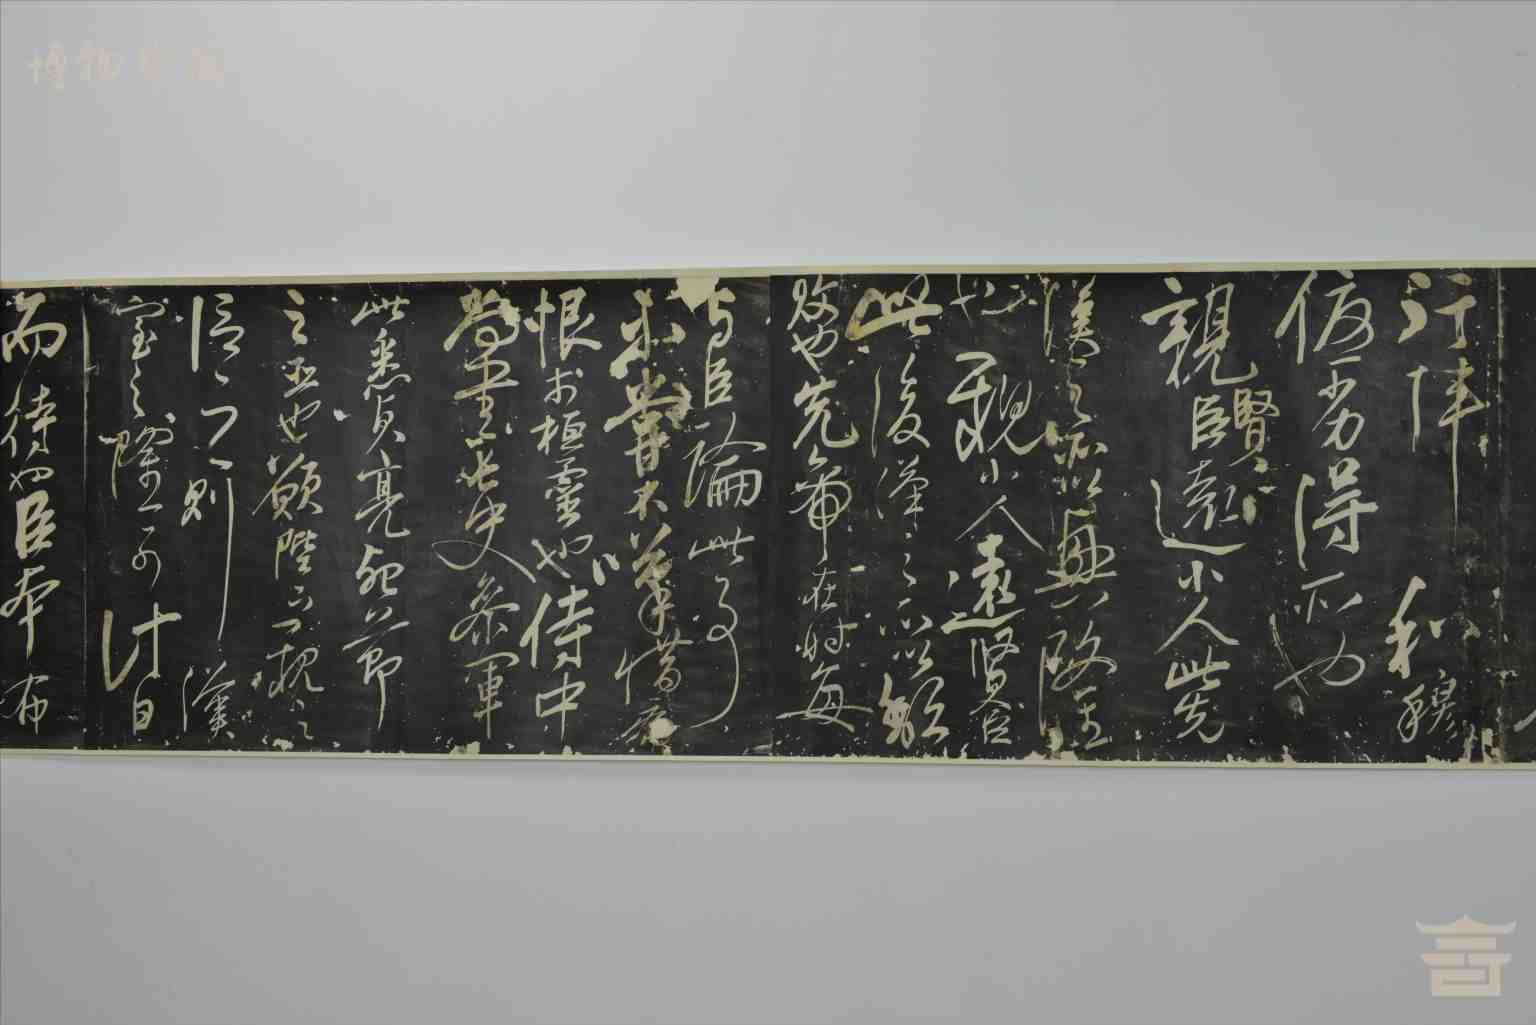 博物
行陣和穆
優劣得所也
親賢臣遠小人此先
漢之所以興隆
也親小人遠賢臣
此後漢之所以傾
頹也先帝在時每
與臣論此事
未嘗不嘆惜痛
恨於桓靈也侍中
尚書長史參軍
此悉貞亮死節
之臣也願陛下親之
信之則漢
室之隆可計日
而待也臣本布